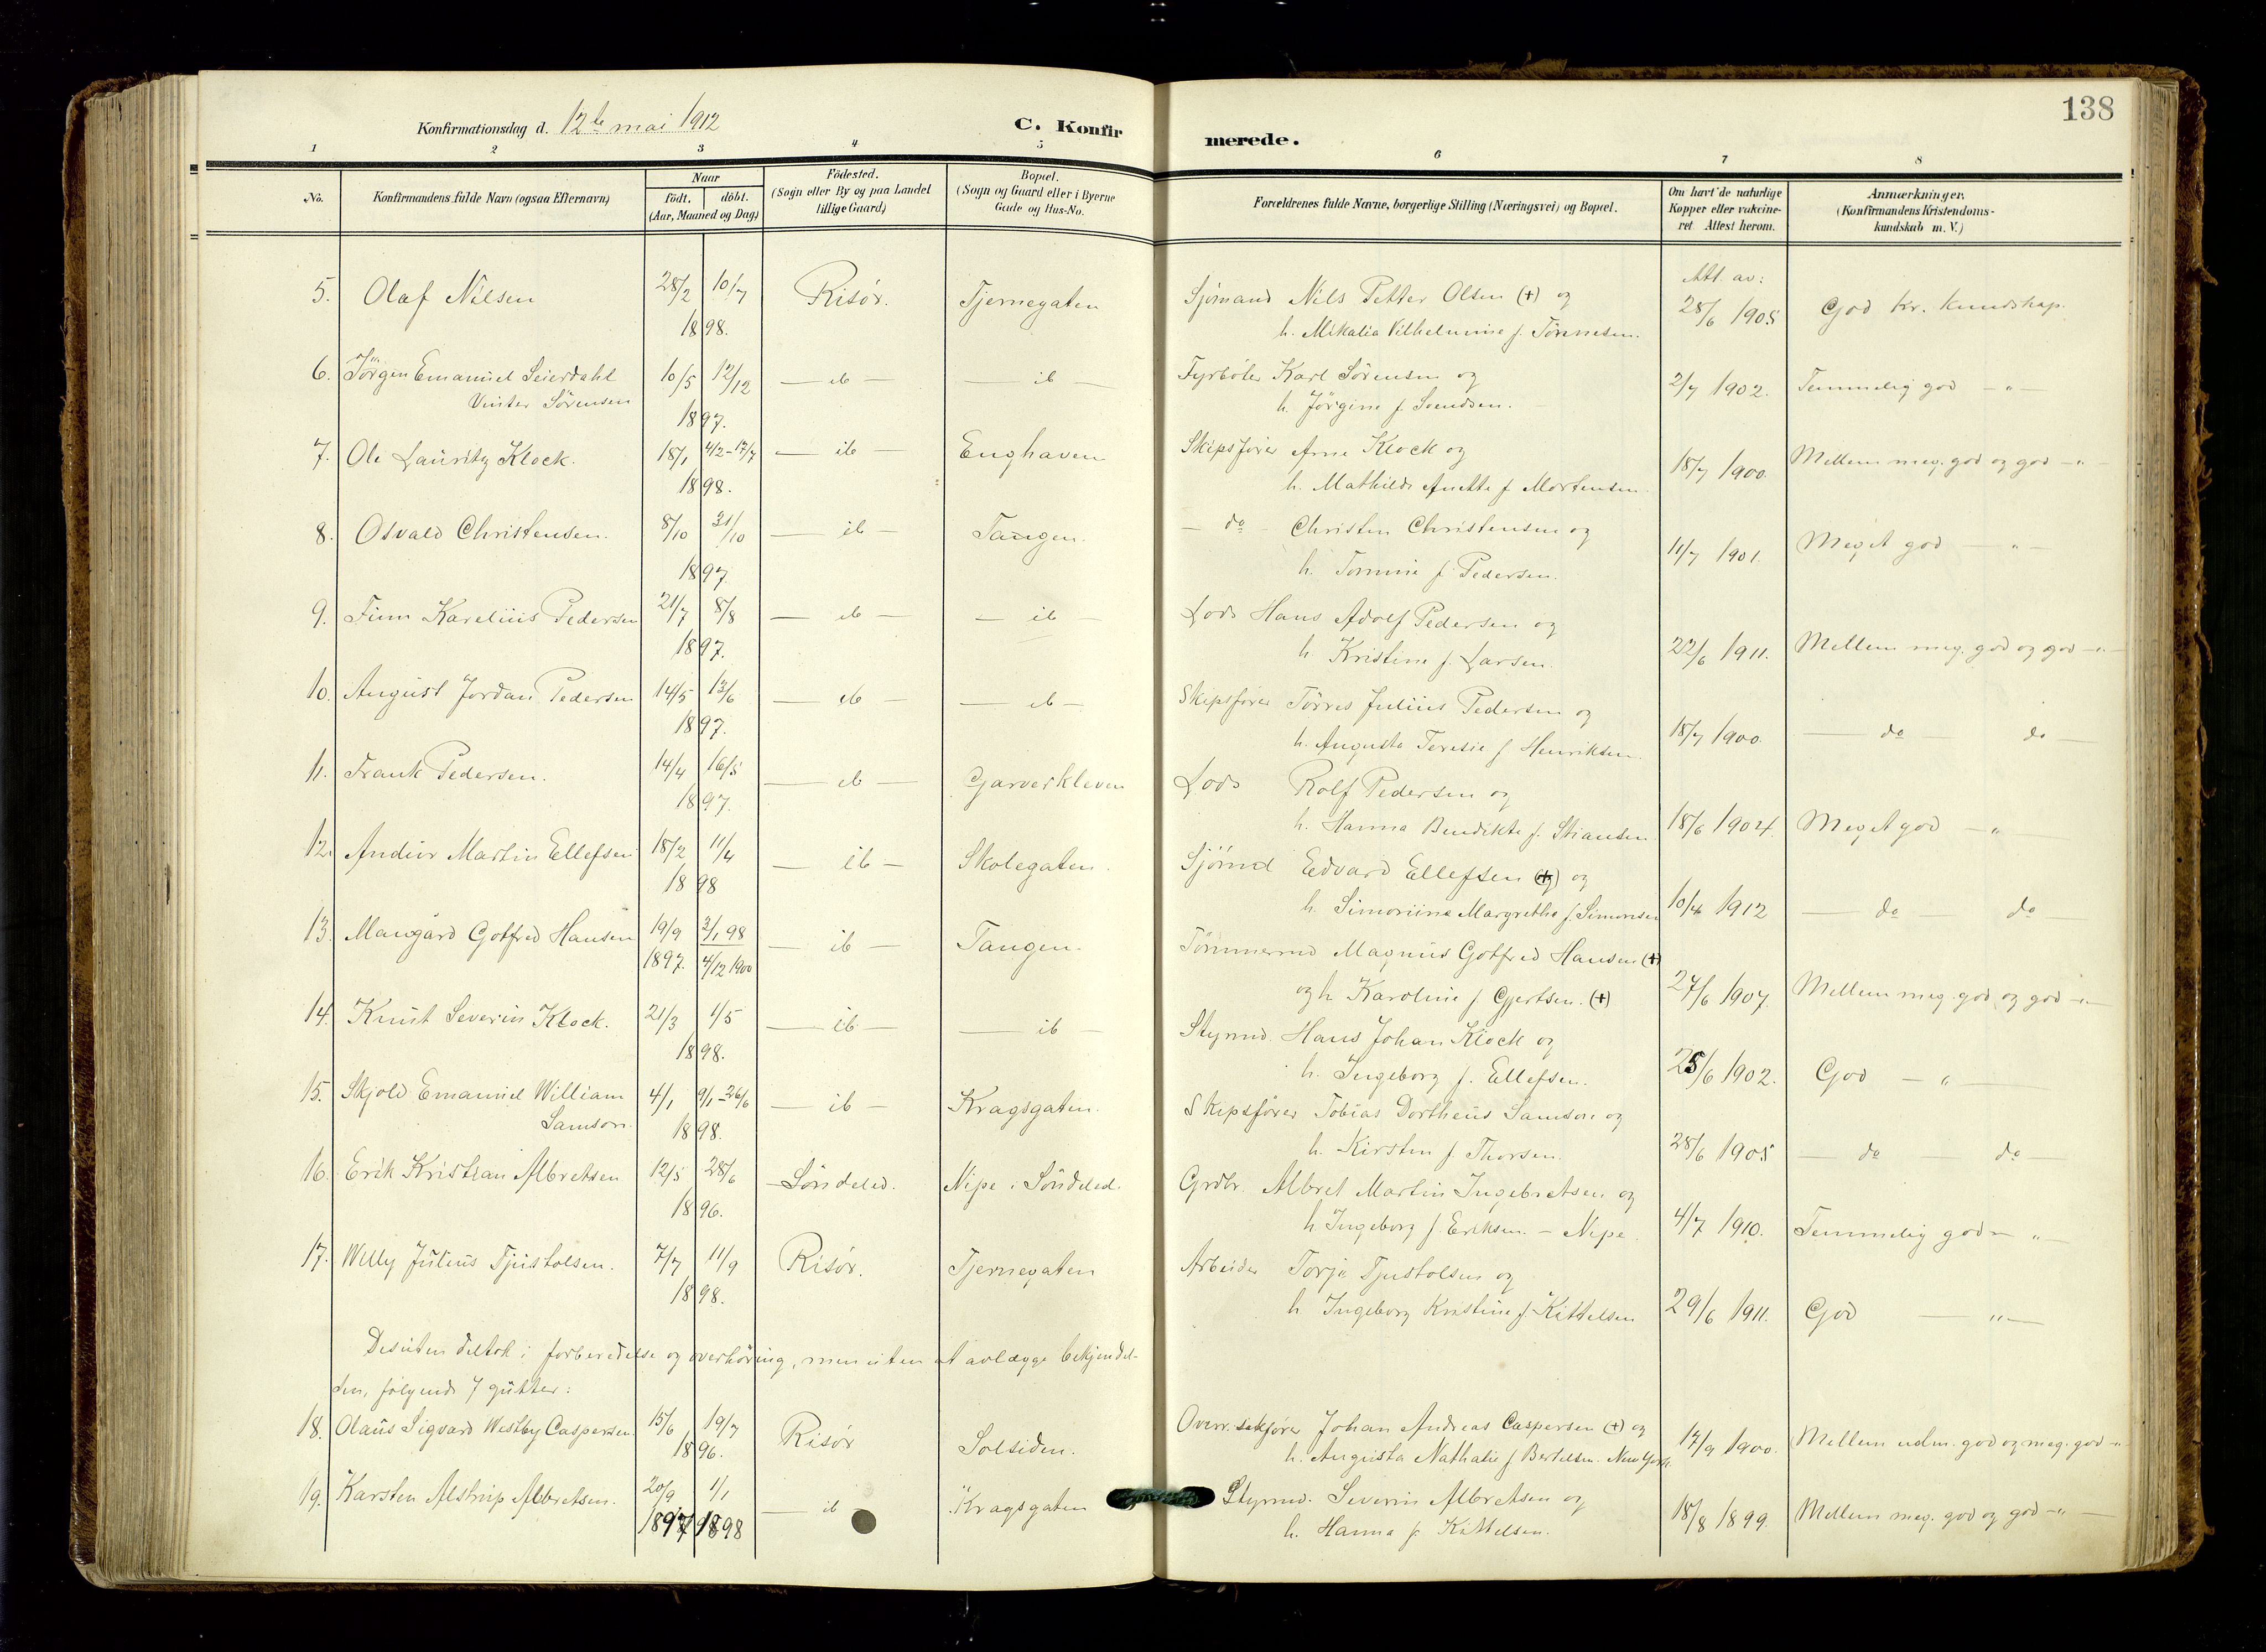 138
Konfirmationsdag d. 12te mai 1912
C. Konfirmerede.
1 2 3 4 5 6 7 8
No.
Konfirmandens fulde Navn (ogsaa Efternavn)
Naar
født. døbt.
(Aar, Maaned og Dag)
Fødested.
(Sogn eller By og paa Landet
tillige Gaard)
Bopæl.
(Sogn og Gaard eller i Byerne
Gade og Hus-No.
Forældrenes fulde Navne, borgerlige Stilling (Næringsvei) og Bopæl.
Om havt de naturlige
Kopper eller vakcine-
ret Attest herom.
Anmærkninger.
(Konfirmandens Kristendoms-
kundskab m. V.)
Att. av:
5. Olaf Nilsen 28/2 10/7 Risør. Tjernegaten Sjømand Nils Petter Olsen (+) og 28/6 1905 God kr. kundskap.
1898. h. Mikalia Vilhelmine f. Tønnesen.
6. Jørgen Emanuel Seierdahl 10/5 12/12 — ib — — ib — Fyrbøter Karl Sørensen og 2/7 1902. Temmelig god — " —
Vinter Sørensen 1897. h. Jørgine f. Svendsen.
7. Ole Lauritz Klock. 18/1 4/2-17/7 — ib — Enghaven Skipsfører Arne Klock og 18/7 1900. Mellem meg. god og god — " —
1898. h. Mathilde Anette f. Mortensen
8. Osvald Christensen. 8/10 31/10 — ib — Tangen. — do — Christen Christensen og 11/7 1901. Meget god — " —
1897 h. Tomine f. Pedersen.
9. Finn Karelius Pedersen 21/7 8/8 — ib — — ib — Lods Hans Adolf Pedersen og 22/6 1911. Mellem meg. god og god — " —
1897. h. Kristine f. Larsen.
10. August Jordan Pedersen 14/5 13/6 — ib — — ib — Skipsfører Tørres Julius Pedersen og 18/7 1900. — do — do —
1897. h. Augusta Teresie f. Henriksen
11. Frank Pedersen. 14/4 16/5 — ib — Garverkleven Lods Rolf Pedersen og 18/6 1904. Meget god — "
1897. h. Hanna Bendikte f. Stiansen
12. Andor Martin Ellefsen 18/2 11/4 — ib — Skolegaten. Sjømd Edvard Ellefsen (+) og 10/4 1912 — do — do —
1898 h. Simonine Margrethe f. Simonsen
13. Mangård Gotfred Hansen 19/9 2/1 98 — ib — Tangen. Tømmermd Magnus Gotfred Hansen (+)
1897. 4/12 1900 og h. Karoline f. Gjertsen. (+) 27/6 1907 Mellem meg. god og god — " —
14. Knut Severin Klock. 21/3 1/5 — ib — — ib — Styrmd. Hans Johan Klock og
1898. h. Ingeborg f. Ellefsen. 25/6 1902. God — " —
15. Skjold Emanuel William 4/1 9/1-26/6 — ib — Kragsgaten. Skipsfører Tobias Dortheus Samson og
Samson. 1898. h. Kirsten f. Thorsen. 28/6 1905 — do — do —
16. Erik Kristian Albretsen 12/5 28/6 Søndeled. Nipe i Søndeled. Grdbr. Albret Martin Ingebretsen og
1896. h. Ingeborg f. Eriksen — Nipe. 4/7 1910. Temmelig god — " —
17. Willy Julius Tjustolsen. 7/7 11/9 Risør. Tjernegaten Arbeider Torje Tjustolsen og
1898. h Ingeborg Kristine f. Kittelsen 29/6 1911. God — " —
Desuten deltok i forberedelse og overhøring, men uten at avlægge bekjendel-
sen, følgende 7 gutter:
18. Olaus Sigvard Westby Caspersen. 15/6 19/7 Risør Solsiden. Overr.sakfører Johan Andreas Caspersen (+) og 17/9 1900. Mellem udm. god og meg. god — " —
1896. h. Augusta Nathalie f Bertelsen. New York.
19. Karsten Alstrup Albretsen. 20/9 1/1 — ib — Kragsgaten Styrmd. Severin Albretsen og 18/8 1899. Mellem meg. god og god — " —
1897 1898 h. Hanna f. Kittelsen.